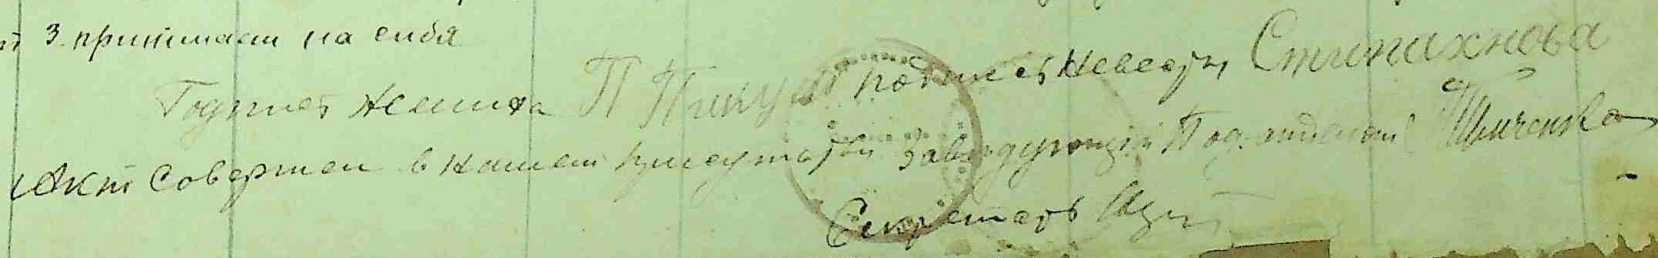 3. принимаем на себя
Подпись жениха П Пикуль подпись Невесты Степахнова
Акт Совершен в нашем присутствии Заведующий Подотделом
Секретарь